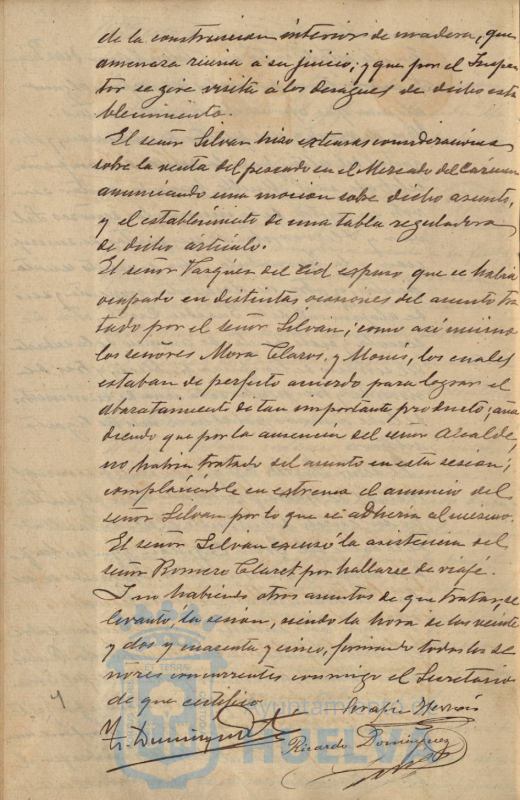 de la construccion interior de madera, que
amenaza ruina a su juicio; y que por el Inspec
tor se gire visita á los desagües de dicho esta
blecimiento.
El señor Silvan hizo extensas consideraciones
sobre la venta del pescado en el Mercado del Carmen
anunciando una mocion sobre dicho asunto,
y el establecimiento de una tabla reguladora
de dicho artículo.
El señor Vazquez del Cid expuso que se habia
ocupado en distintas ocasiones del asunto tra
tado por el señor Silvan; como asi mismo
los señores Mora Claros, y Monis, los cuales
estaban de perfecto acuerdo para lograr el
abaratamiento de tan importante producto; aña
diendo que por la ausencia del señor Alcalde,
no habia tratado del asunto en esta sesion;
complaciéndole en extremo el anuncio del
señor Silvan por lo que se adheria al mismo.
El señor Silvan excusó la asistencia del
señor Romero Claret por hallarse de viaje.
I no habiendo otros asuntos de que tratar, se
levantó, la sesion, siendo la hora de las veinte
y dos y cuarenta y cinco, firmando todos los se
ñores concurrentes conmigo el Secretario
de que certifico.
Serafin
Dominguez
Ricardo Dominguez
Ayuntamiento de
HUELVA